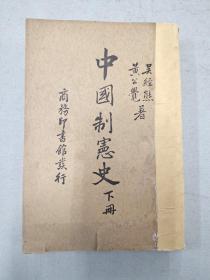 吳經熊
黃公覺 著
中國制憲史 下冊
商務印書館發行